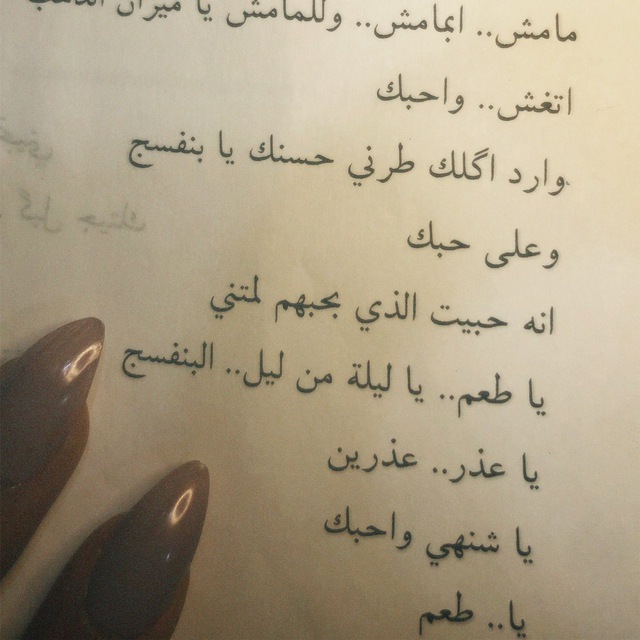 مامش.. ابمامش.. وللمامش يا ميزان الذهب
اتغش.. واحبك
وارد اگلك طرني حسنك يا بنفسج
وعلى حبك
انه حبيت الذي بحبهم لمتني
يا طعم.. يا ليلة من ليل.. البنفسج
يا عذر.. عذرين
يا شنهي واحبك
يا.. طعم